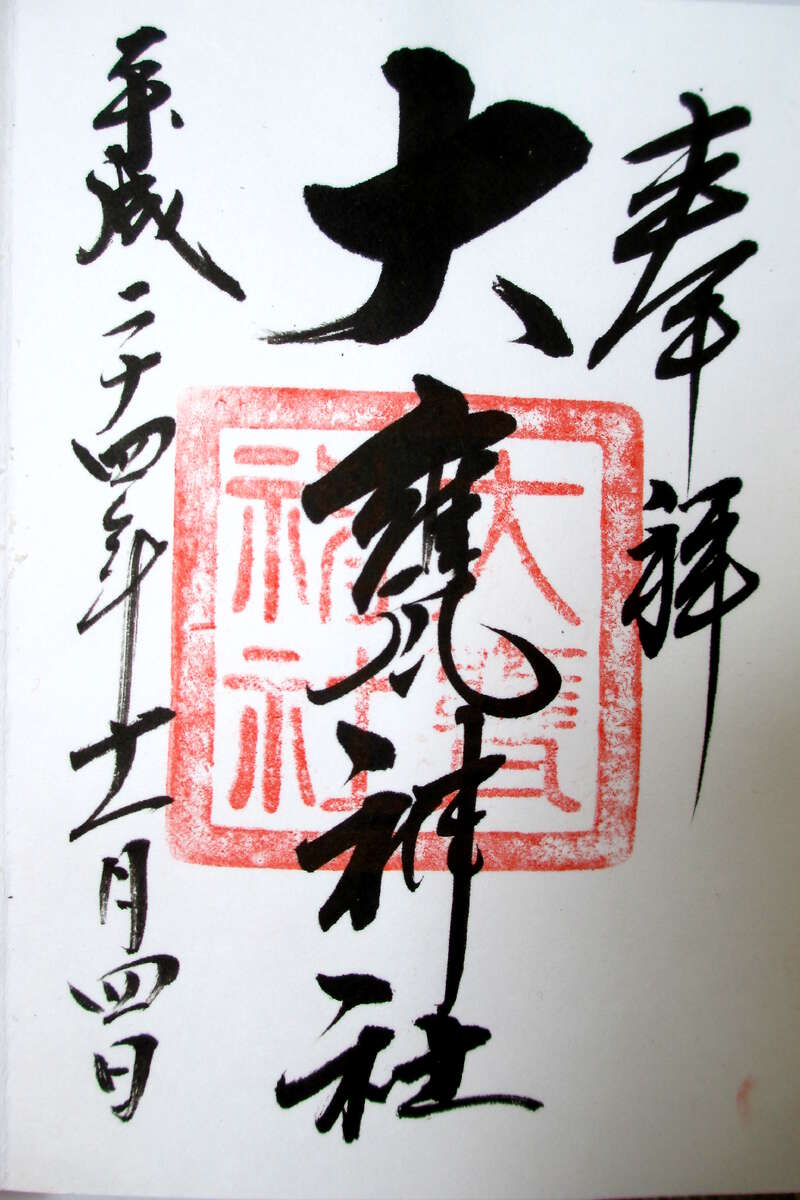 奉拝
大甕神社
平成二十四年十一月四日
大甕
神社